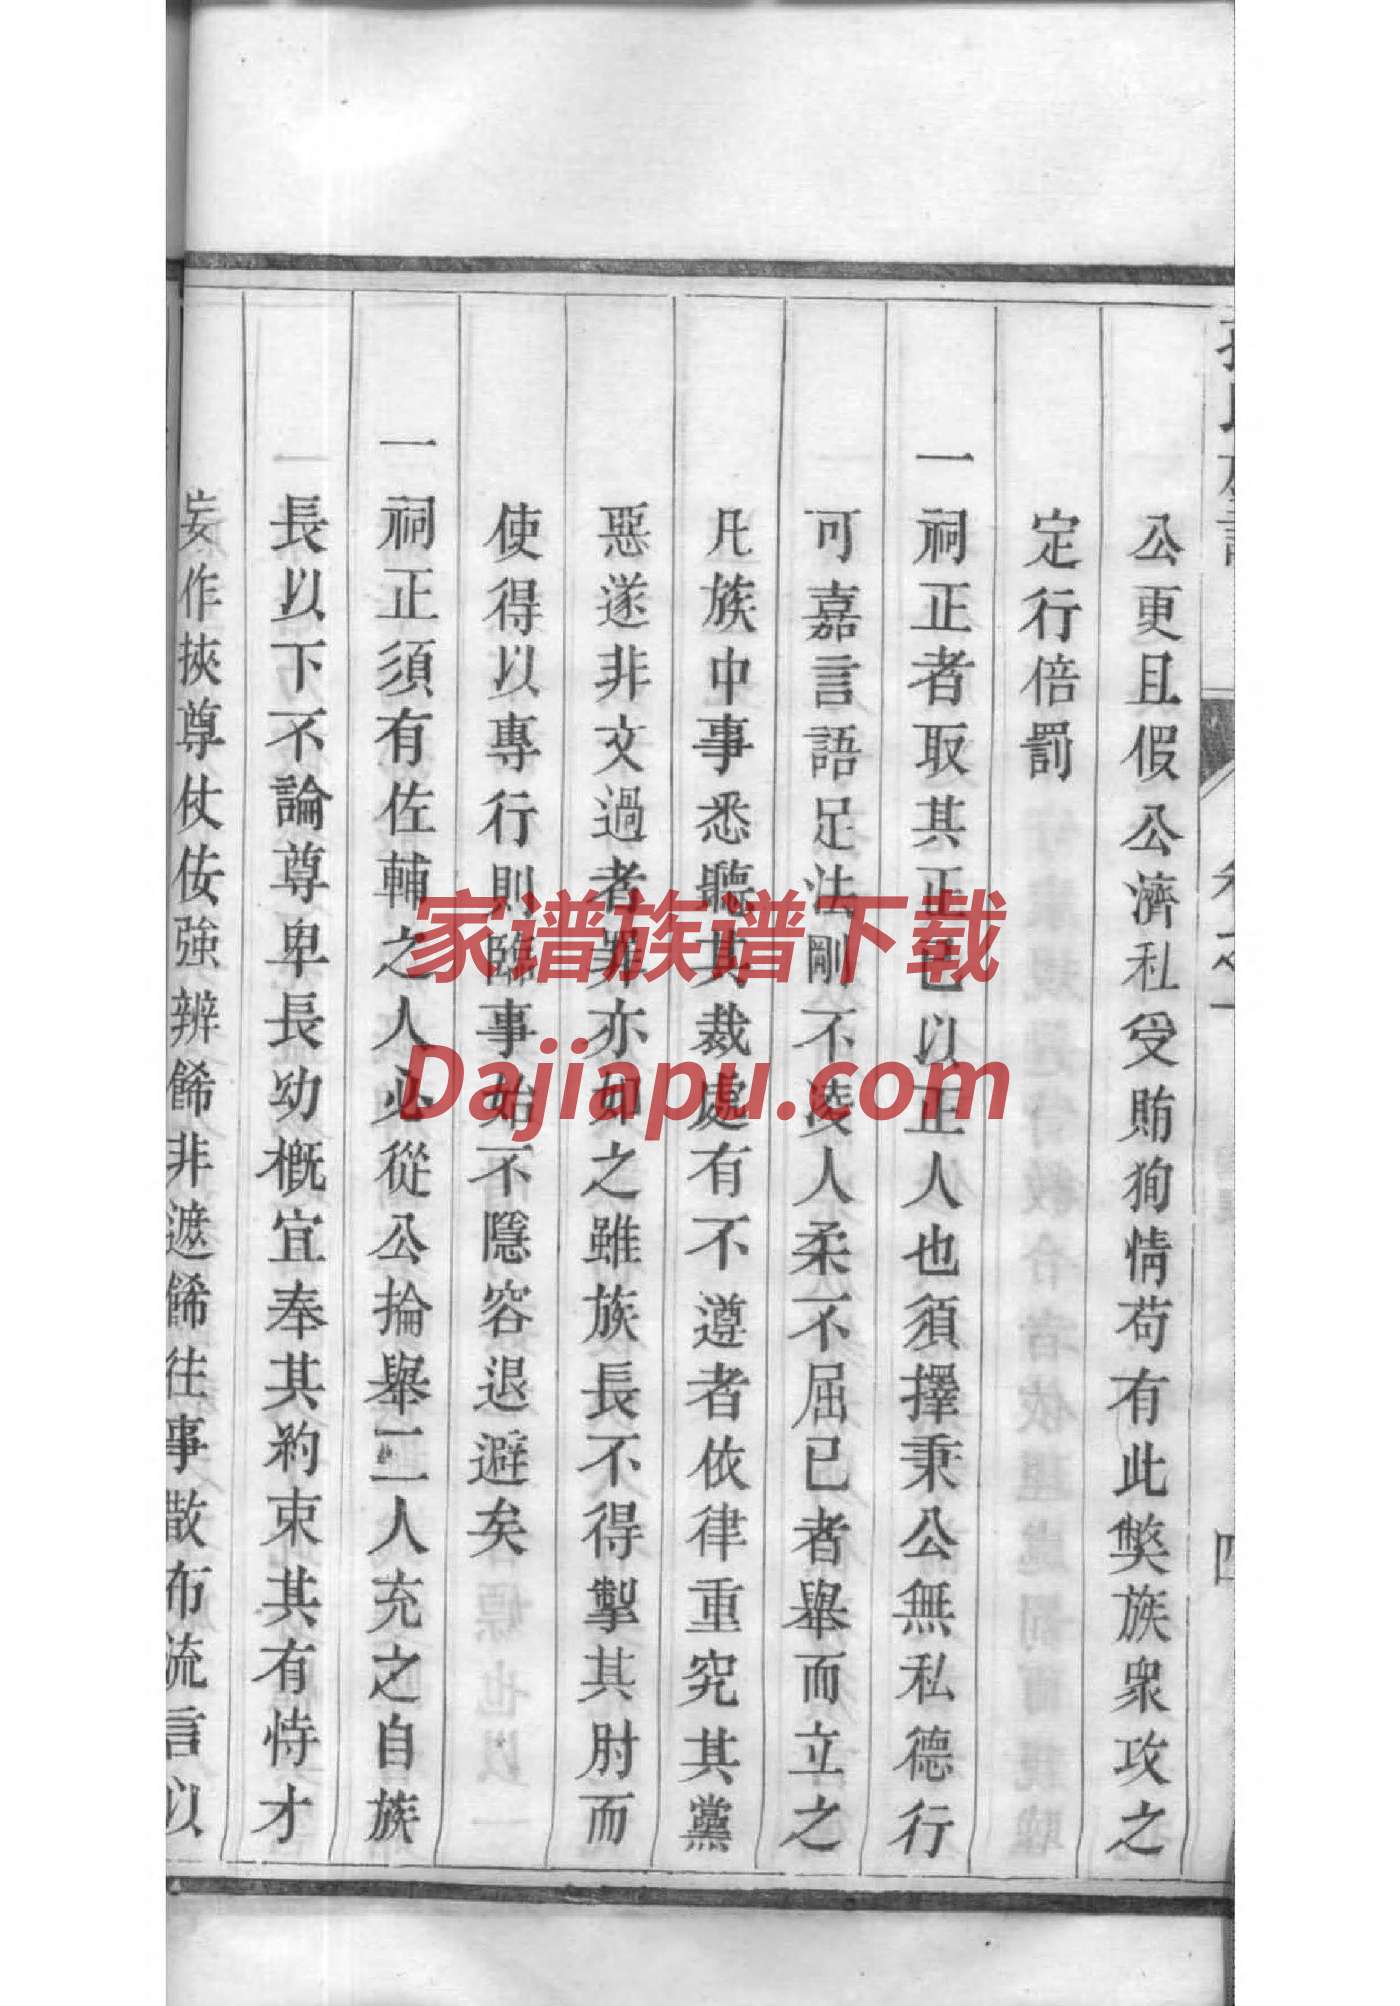 公更且假公濟私受賄狥情苟有此獘族衆攻之
定行倍罰
一祠正者取其正已以正人也須擇秉公無私德行
可嘉言語足法剛不凌人柔不屈已者舉而立之
凡族中事悉聽其裁處有不遵者依律重究其黨
惡遂非文過者罪亦如之雖族長不得掣其肘而
使得以專行則臨事始不隱容退避矣
一祠正須有佐輔之人必從公掄舉二人充之自族
長以下不論尊卑長幼槪宜奉其約束其有恃才
妄作挾尊仗侒強辨餙非遮餙往事散布流言以
家谱族谱下载
Dajiapu.com